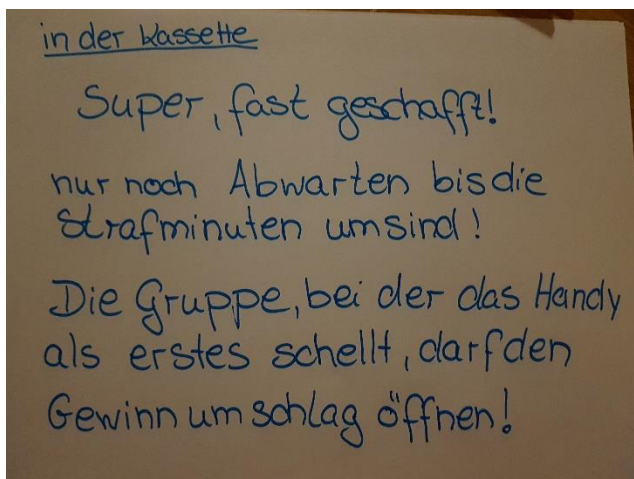 in der Kassette
Super, fast geschafft!
nur noch Abwarten bis die
Strafminuten um sind!
Die Gruppe, bei der das Handy
als erstes schellt, darf den
Gewinnumschlag öffnen!